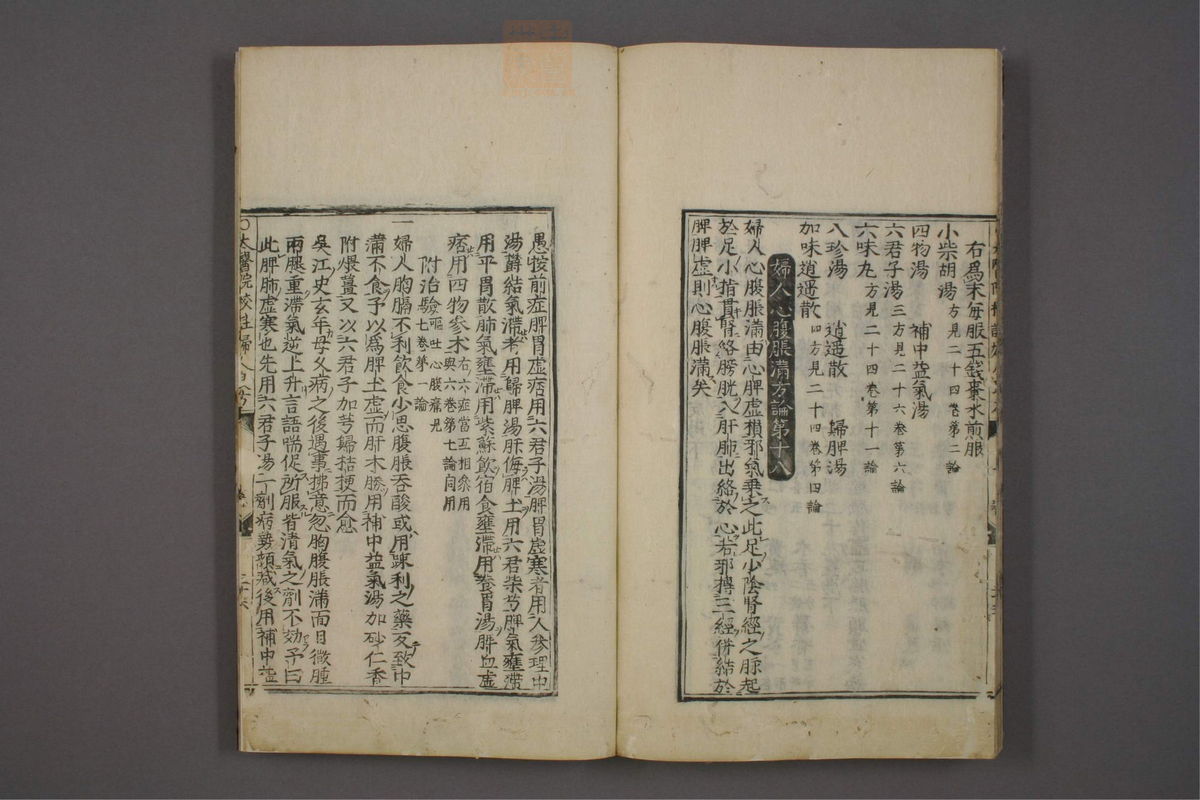 右爲末每服五錢棗水煎服
小柴胡湯方見二十四卷第二論
四物湯　補中益氣湯
六君子湯三方見二十六卷第六論
六味丸方見二十四卷第十一論
八珍湯　逍遥散　歸脾湯
加味逍遥散四方見二十四卷第四論
婦人心腹脹滿方論第十八
婦人心腹脹滿由心脾虛損邪氣乗之此足少陰腎經之脉起
於足小指貫腎絡膀胱入肝肺出絡於心若邪搏三經併結於
脾脾虛則心腹脹滿矣
愚按前症脾胃虛痞用六君子湯脾胃虛寒者用人參理中
湯欝結氣滯者用歸脾湯肝侮脾土用六君柴芍脾氣壅滯
用平胃散肺氣壅滯用紫蘇飲宿食壅滯用養胃湯脾血虛
痞用四物參朮右六症當互相參用與六卷第七論同用
附治驗嘔吐心腹痛見七卷第一論
一婦人胸膈不利飲食少思腹脹吞酸或用疎利之藥反致中
滿不食予以爲脾土虛而肝木勝用補中益氣湯加砂仁香
附煨薑又以六君子加芎歸桔梗而愈
吳江史玄年母久病之後遇事拂意忽胸腹脹滿面目微腫
兩腿重滯氣逆上升言語喘促所服皆清氣之劑不効予曰
此脾肺虛寒也先用六君子湯一劑病勢頗減後用補中益
〇太醫院校註婦人良方